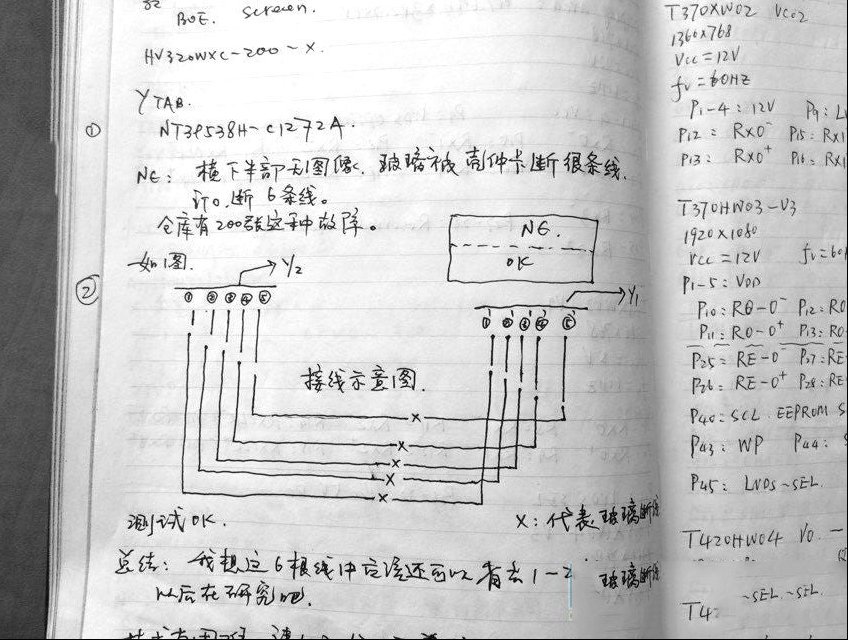 BOE. screen.
HV320WXC-200-X.
Y TAB.
①
NT39538H-C1272A.
NE: 横下半部无图像, 玻璃被壳体卡断很多条线,
断6条线。
仓库有200张这种故障。
如图.
②
Y2
① ② ③ ④ ⑤
NG.
OK
Y1
① ② ③ ④ ⑤
接线示意图.
X
X
X
X
X
测试OK.
X: 代表玻璃断
总结: 我想这6根线中应该还可以省去1-2
玻璃断
以后在研究吧.
T370XW02 VC02
1360X768
Vcc=12V
fv=60HZ
P1-4: 12V
P12= RX0-
P15= RX1
P13: RX0+
P16= RX1
T370HW03-V3
1920X1080
Vcc=12V
P1-5: VDD
P10: RO-0-
P12= RO
P11: RO-0+
P13: RO-
P25= RE-0-
P27= RE-
P26= RE-0+
P28= RE-
P40=SCL EEPROM S
P43: WP
P44:
P45: LVDS-SEL
T420HW04 V0.
-SEL -SEL.
T42